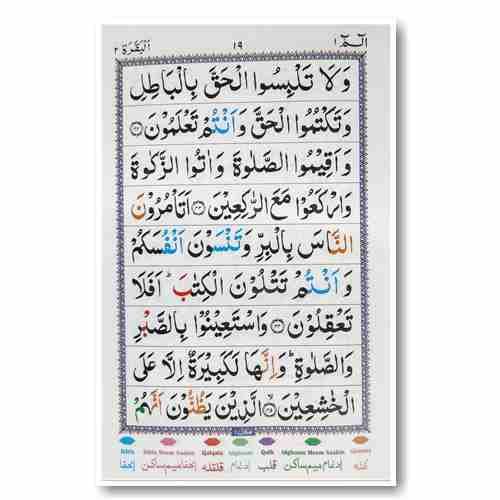 الٓمّٓ ١ ١٩ اَلْبَقَرَة ٢
وَلَا تَلْبِسُوا الْحَقَّ بِالْبَاطِلِ
وَتَكْتُمُوا الْحَقَّ وَاَنْتُمْ تَعْلَمُوْنَ ﴿۴۲﴾
وَاَقِيْمُوا الصَّلٰوةَ وَاٰتُوا الزَّكٰوةَ
وَارْكَعُوْا مَعَ الرّٰكِعِيْنَ ﴿۴۳﴾ اَتَاْمُرُوْنَ
النَّاسَ بِالْبِرِّ وَتَنْسَوْنَ اَنْفُسَكُمْ
وَاَنْتُمْ تَتْلُوْنَ الْكِتٰبَ ؕ اَفَلَا
تَعْقِلُوْنَ ﴿۴۴﴾ وَاسْتَعِيْنُوْا بِالصَّبْرِ
وَالصَّلٰوةِ ؕ وَاِنَّهَا لَكَبِيْرَةٌ اِلَّا عَلَى
الْخٰشِعِيْنَ ﴿۴۵﴾ الَّذِيْنَ يَظُنُّوْنَ اَنَّهُمْ
Ikhfa Ikhfa Meem Saakin Qalqala Idghaam Qalb Idghaam Meem Saakin Ghunna
غنه إدغام ميم ساكن قلب إدغام قلقله إخفا ميم ساكن إخفا